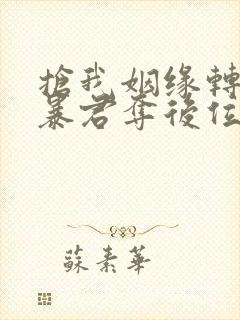 搶我姻缘轉
暴君奪後位
蘇素華